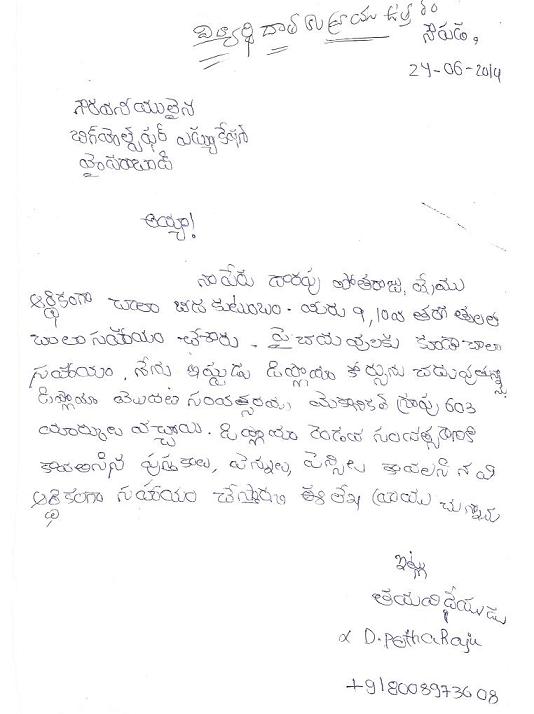 విద్యార్థి దాత కు వ్రాయు ఉత్తరం
సౌరుడ,
24-06-2014
గౌరవనీయులైన
బిగ్ హెల్ప్ ఫర్ ఎడ్యుకేషన్
హైదరాబాద్
అయ్యా!
నా పేరు దారపు పోతరాజు, మేము
ఆర్థికంగా చాలా బీద కుటుంబం. మీరు 9, 10వ తరగతులలో
చాలా సహాయం చేశారు. పై చదువులకు కూడా చాలా
సహాయం. నేను ఇప్పుడు డిప్లొమా కోర్సును చదువుతున్న
డిప్లొమా మొదటి సంవత్సరం, మెకానికల్ గ్రూపు 603
మార్కులు వచ్చాయి. డిప్లొమా రెండవ సంవత్సరానికి
కావలసిన పుస్తకాలు, పెన్నులు, పెన్సిల్లు కావలసినవి
ఆర్థికంగా సహాయం చేస్తారని ఈ లేఖ వ్రాయు చున్నాను
ఇట్లు
తమ విధేయుడు
D. potha Raju
+918008973608